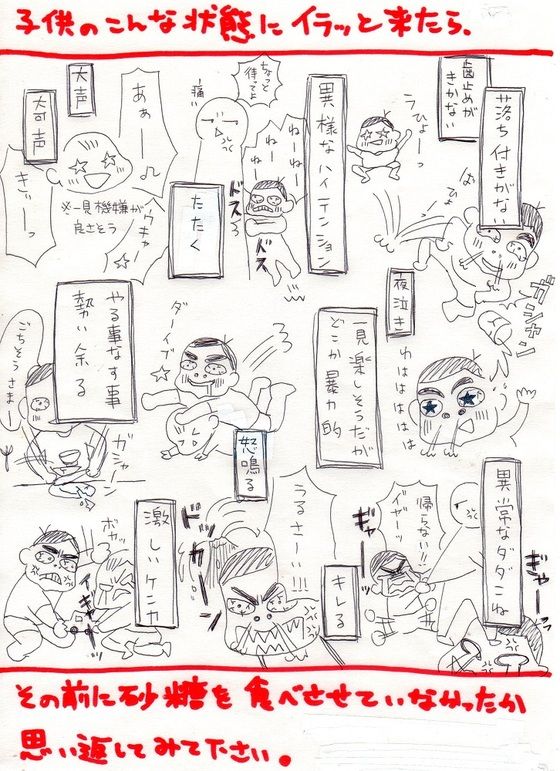 子供のこんな状態にイラッと来たら、
落ち付きがない
歯止めが
きかない
うひょーっ
ひょー
ガシャン
異様なハイテンション
ちょっと
待ってよ
痛い
ねーねー
ねーねー
ドスッ
ドス
たたく
大声
奇声
あぁーー
きぃーーっ
ウキャ
※一見機嫌が
良さそう
夜泣き
わはははははは
一見楽しそうだが
どこか暴力的
ダーイブ
やる事なす事
勢い余る
ごちそうさまー
ガシャーン
異常なダダこね
帰らない!!
ギャーッ
ギャー
怒鳴る
うるさーい!!!
キレる
ドッカーン
激しいケンカ
ボカッ
その前に砂糖を食べさせていなかったか
思い返してみて下さい。